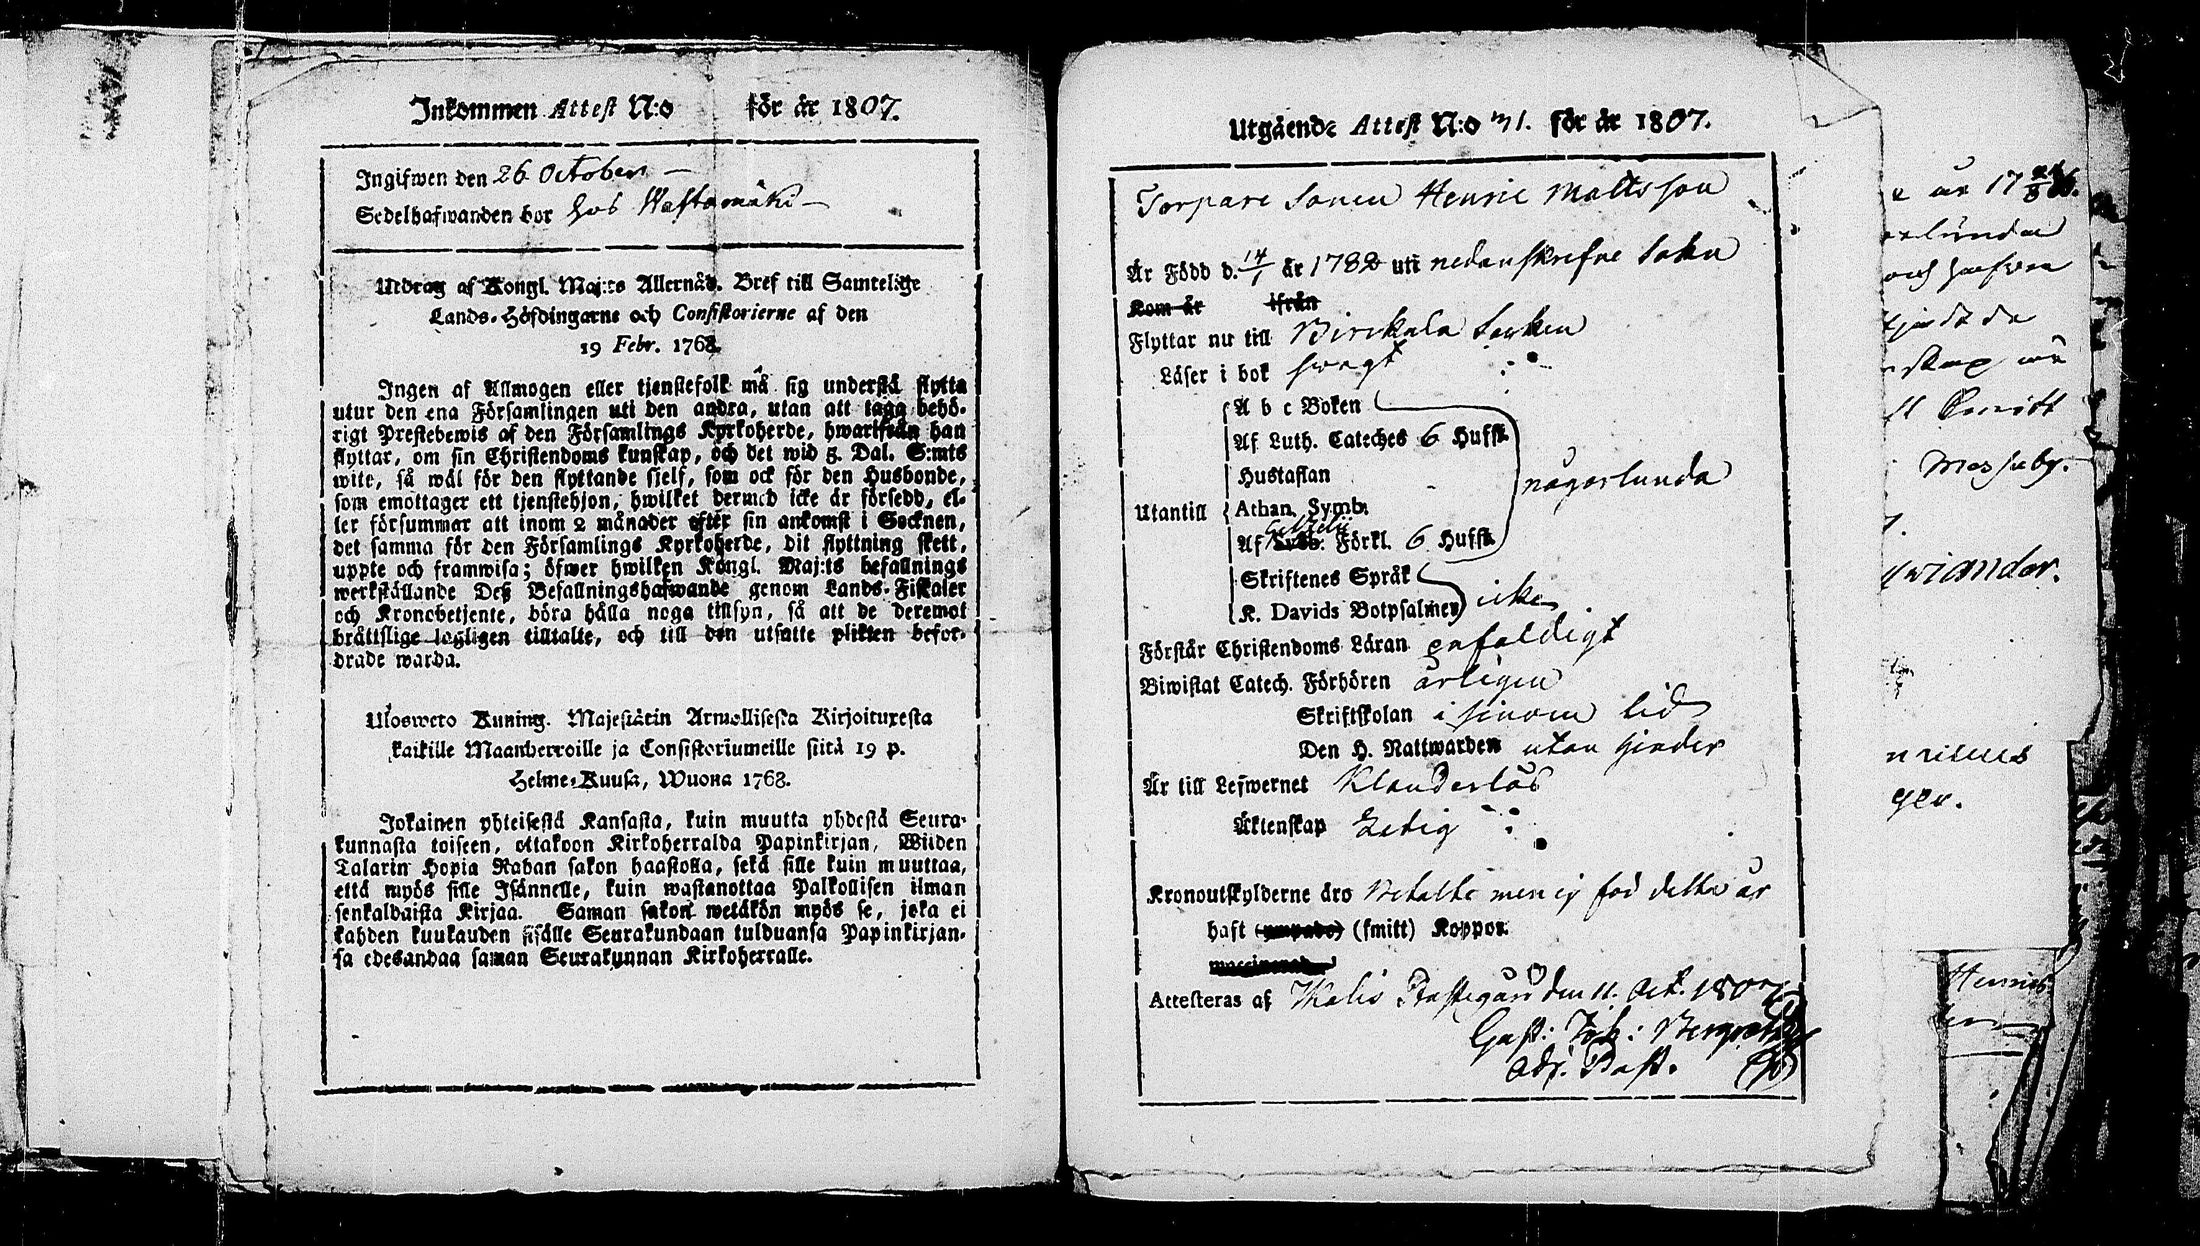 Inkommen Attest N:o för år 1807.
Ingifwen den 26 October
Sedelhafwanden bor hos Wastamäki
Utdrag af Kongl. Maj:ts Allernåd. Bref till Samtelige
Lands-Höfdingarne och Consistorierne af den
19 Febr. 1768.
Ingen af Allmogen eller tjenstefolk må sig understå flytta
utur den ena Församlingen uti den andra, utan att taga behö-
rigt Prestebewis af den Församlings Kyrkoherde, hwarifrån han
flyttar, om sin Christendoms kunskap, och det wid 5. Dal. S:mts
wite, så wäl för den flyttande sielf, som ock för den Husbonde,
som emottager ett tjenstehjon, hwilket dermed icke är försedd, el-
ler försummar att inom 2 månader efter sin ankomst i Socknen,
det samma för den Församlings Kyrkoherde, dit flyttning skett,
uppte och framwisa; öfwer hwilken Kongl. Maj:ts befallnings
werkställande Deß Befallningshafwande genom Lands-Fiskaler
och Kronobetjente, böra hålla noga tillsyn, så att de deremot
bråttslige lagligen tilltalte, och till den utsatte plikten befor-
drade warda.
Ulosweto Kuning. Majestätin Armollisesta Kirjoituxesta
kaikille Maanherroille ja Consistoriumeille siitä 19 p.
Helme-Kuusa, Wuona 1768.
Jokainen yhteisestä Kansasta, kuin muutta yhdestä Seura-
kunnasta toiseen, ottakoon Kirkoherralda Papinkirjan, Wiiden
Talarin Hopia Rahan sakon haastolla, sekä sille kuin muuttaa,
että myös sille Isännelle, kuin wastanottaa Palkollisen ilman
senkaldaista Kirjaa. Saman sakon wetäkön myös se, joka ei
kahden kuukauden sisälle Seurakundaan tulduansa Papinkirjan-
sa edesandaa saman Seurakunnan Kirkoherralle.
Utgående Attest N:o 71. för år 1807.
Torpare Sonen Henric Mattsson
Är Född d. 14/1 år 1782 uti nedanskrefne Sokn
Kom år ifrån
Flyttar nu till Birckala Socken
Läser i bok swagt
A b c Boken
Af Luth. Cateches 6 Hufst.
Hustaflan
någorlunda
Utantill
Athan. Symb.
Af Förkl. 6 Hufst.
Skriftenes Språk
icke
K. Davids Botpsalmer
Förstår Christendoms Läran enfaldigt
Biwistat Catech. Förhören årligen
Skriftskolan i sinom tid
Den H. Nattwarden utan hinder
Är till Lefwernet Klanderlös
Äktenskap Ledig
Kronoutskylderne äro Betalte men ej för detta år
haft (smitt) Koppor.
Attesteras af Prästegård den 11. Oct. 1807
Gust: Joh:
Adj. Past.
år 17
Messuby.
Henric